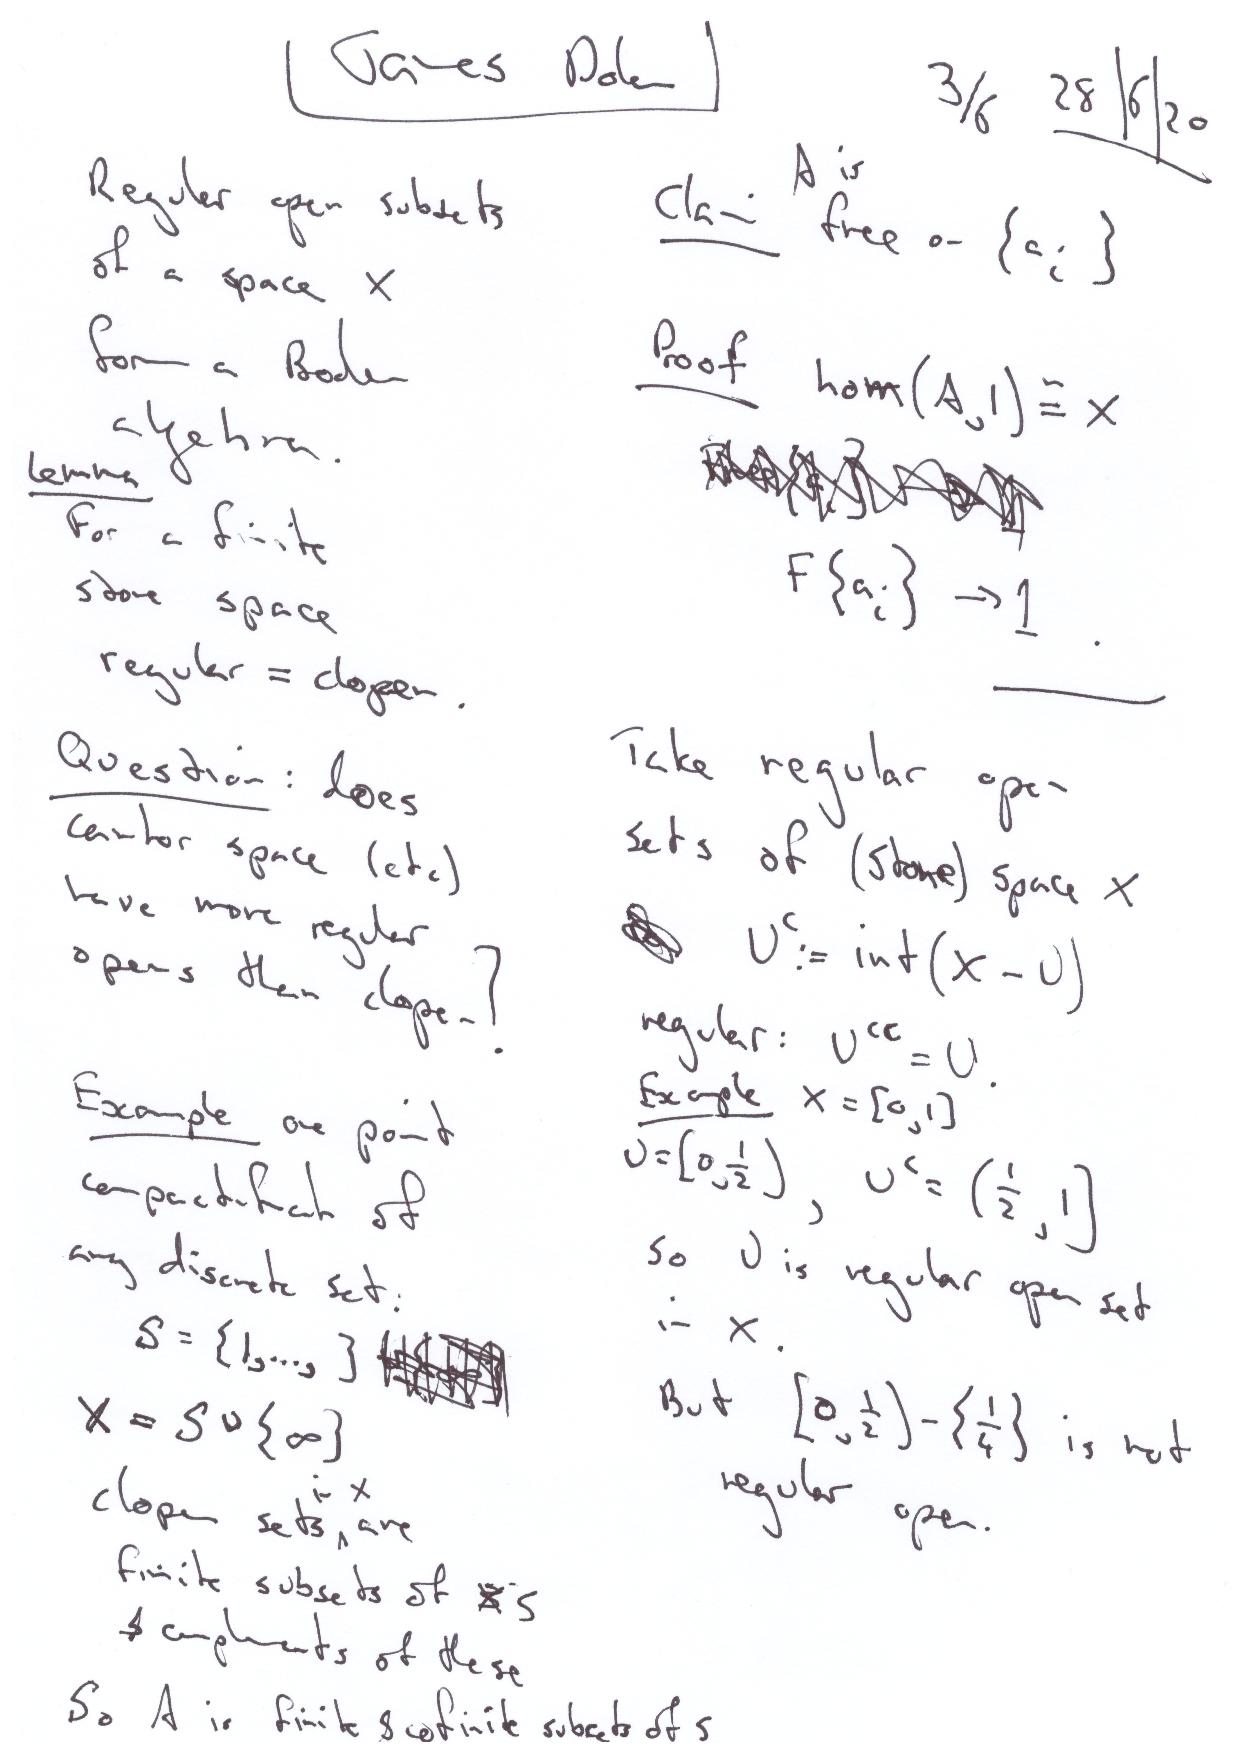 James Dolan
3/6 28/6/20
Regular open subsets
of a space X
form a Boolean
algebra.
Lemma
For a finite
stone space
regular = clopen.
Question: does
cantor space (etc)
have more regular
opens than clopen?
Example one point
compactificat of
any discrete set:
S = {1,..., }
X = S ∪ {∞}
in X
clopen sets ∧ are
finite subsets of S
& complements of these
So A is finite & cofinite subsets of S
A is
Claim free on {aᵢ}
Proof hom(A,1) ≅ X
F{aᵢ} → 1 .
Take regular open
sets of (stone) space X
Uᶜ := int(X - U)
regular: Uᶜᶜ = U.
Example X = [0,1]
U = [0,½), Uᶜ = (½,1]
so U is regular open set
in X.
But [0,½) - {¼} is not
regular open.